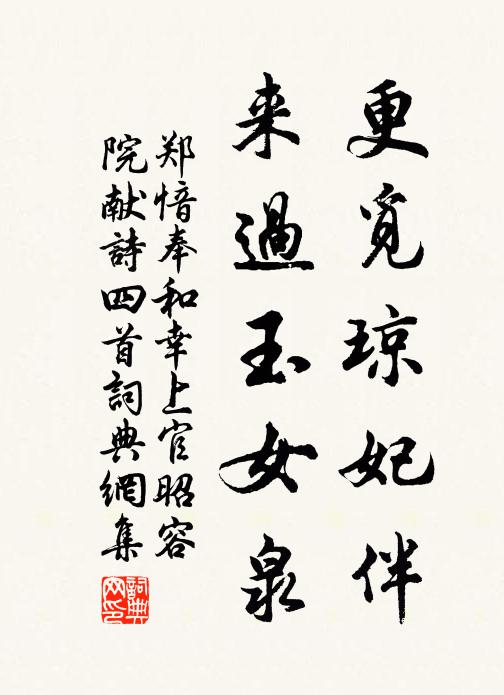 更覓琼妃伴
来過玉女泉
郑愔奉和幸上官昭容
院献詩四首詞典網集
詞典
网印